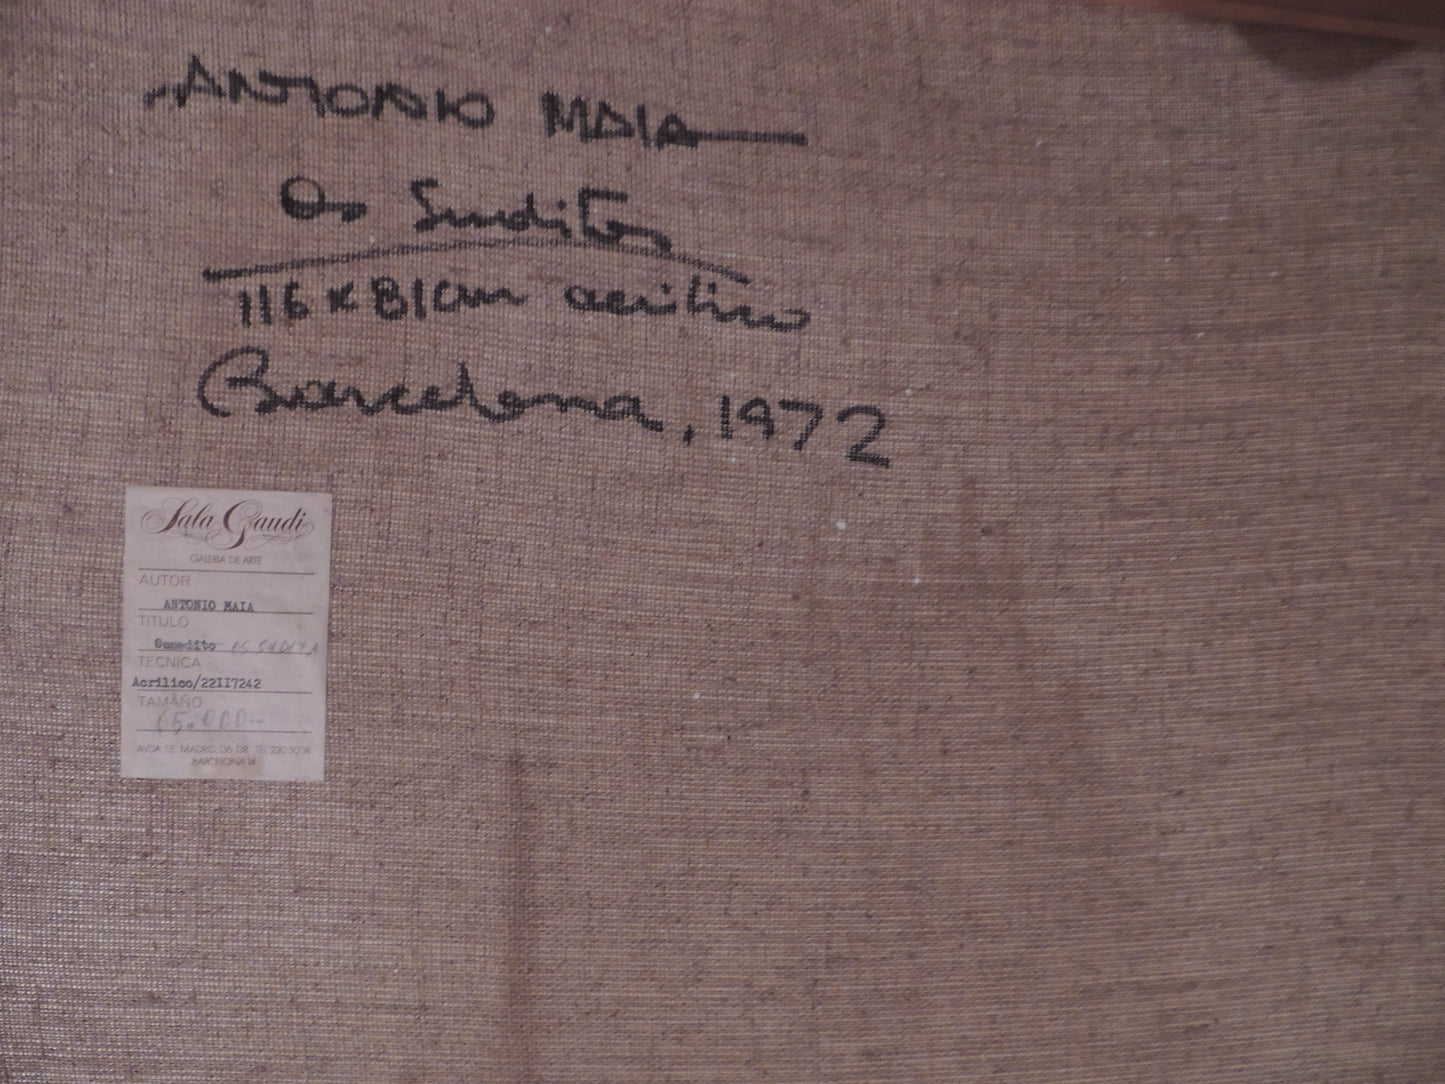 ANTONIO MAIA
Os Suditos
116 x 81 cm acrilico
Barcelona, 1972
Sala Gaudi
GALERIA DE ARTE
AUTOR
ANTONIO MAIA
TITULO
OS SUDITA
TECNICA
Acrilico/22II7242
TAMAÑO
65.000-
AVDA DE MADRID, 136 138 TEL 230 50 38
BARCELONA 14